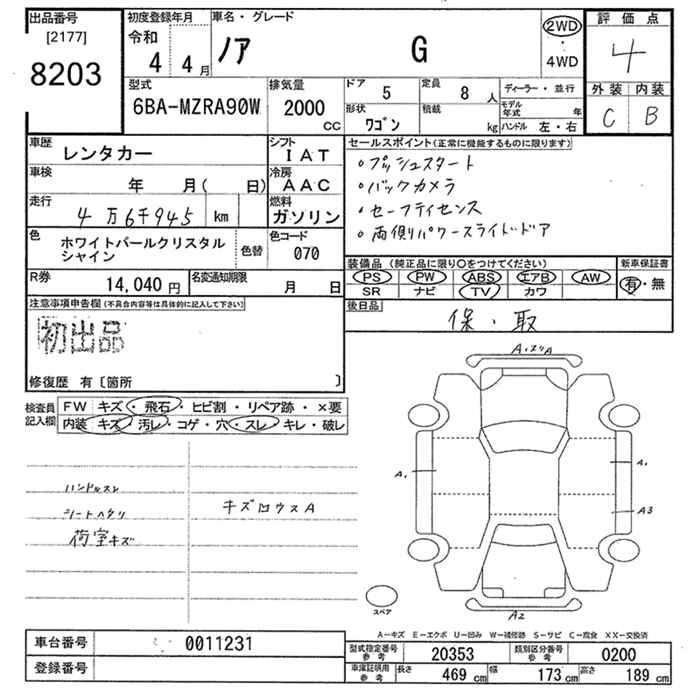 出品番号
[2177]
8203
初度登録年月
令和
4 4月
車名・グレード
ノア G
2WD
・
4WD
評価点
4
外装 内装
C B
型式
6BA-MZRA90W
排気量
2000
CC
ドア
5
定員
8人
形状
ワゴン
積載
kg
ディーラー・並行
モデル年式 年
ハンドル 左・右
車歴
レンタカー
シフト
IAT
車検
年 月( 日)
冷房
AAC
走行
4万6千945 km
燃料
ガソリン
色
ホワイトパールクリスタル
シャイン
色替
色コード
070
R券
14,040円
名変通知期限
月 日
セールスポイント(正常に機能するものに限ります)
・プッシュスタート
・バックカメラ
・セーフティセンス
・両側パワースライドドア
装備品(純正品に限り○をつけてください)
PS PW ABS エアB AW
SR ナビ TV カワ
新車保証書
有・無
後日品
保・取
注意事項申告欄(不具合内容等は具体的に記入して下さい)
初出品
修復歴 有〔箇所 〕
検査員
記入欄
FW キズ・飛石・ヒビ割・リペア跡・×要
内装 キズ・汚レ・コゲ・穴・スレ・キレ・破レ
ハンドルスレ
シートヘタリ
荷室キズ
キズ凹ウスA
A1
A1
A3
A2
スペア
A-キズ E-エクボ U-凹み W-補修跡 S-サビ C-腐食 XX-交換済
車台番号
0011231
登録番号
型式指定番号
参考
20353
類別区分番号
参考
0200
車庫証明用
参考
長さ 469cm 幅 173cm 高さ 189cm